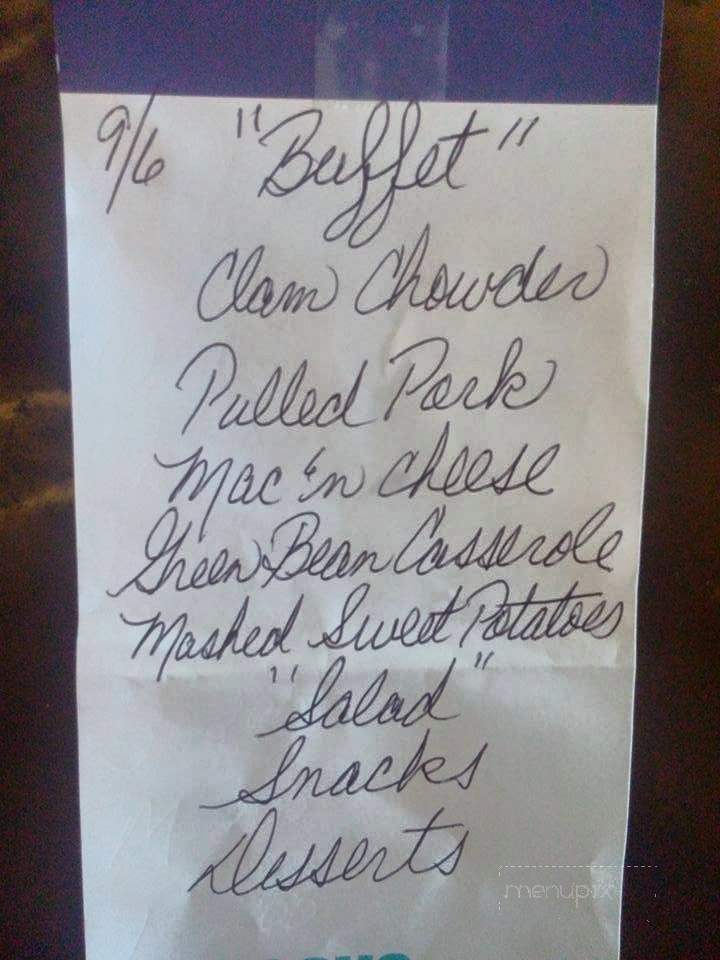 9/6 "Buffet"
Clam Chowder
Pulled Pork
Mac 'n cheese
Green Bean Casserole
Mashed Sweet Potatoes
"Salad"
Snacks
Desserts
menupix